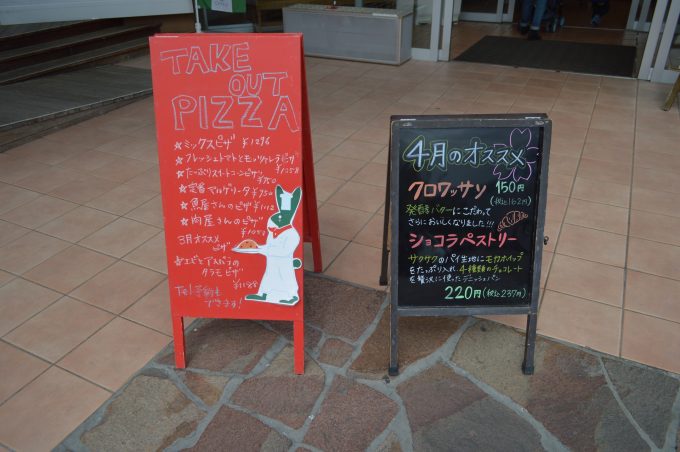 TAKE
OUT
PIZZA
★ミックスピザ ¥1296
★フレッシュトマトとモッツァレラピザ
¥1258
★たっぷりスイートコーンピザ
¥750
★定番マルゲリータ ¥750
★魚屋さんのピザ ¥1112
★肉屋さんのピザ
¥1050
3月オススメ
ピザ
★エビとアスパラの
タラモピザ
Tel予約も
できます!
4月のオススメ
クロワッサン 150円
(税込162円)
発酵バターにこだわって
さらにおいしくなりました!!!
ショコラペストリー
サクサクのパイ生地にモカホイップ
をたっぷり入れ4種類のチョコレート
を贅沢に使ったデニッシュパン
220円(税込237円)